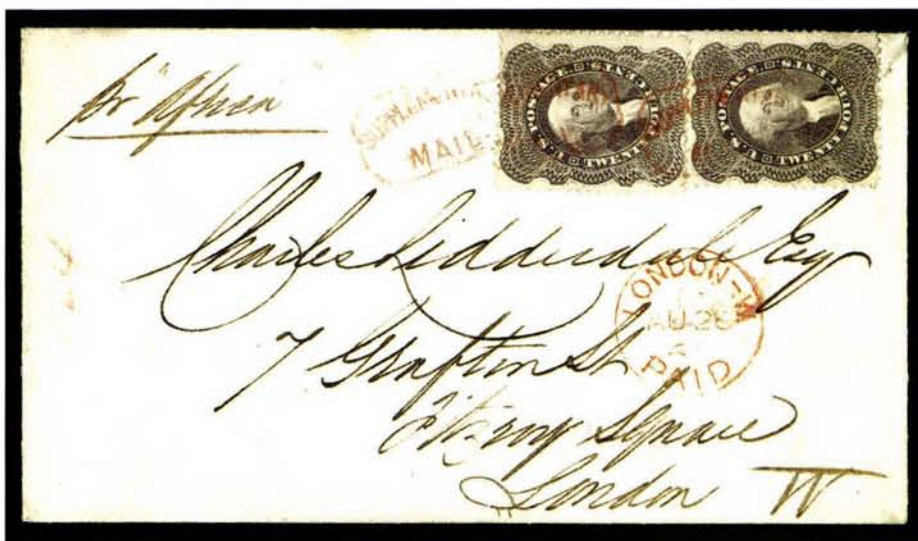 pr "Africa
SUPPLEMENTARY
MAIL
U.S. POSTAGE.
TWENTY FOUR CENTS
U.S. POSTAGE.
TWENTY FOUR CENTS
Charles Lidderdale Esq
LONDON-W
AU 26
PAID
7 Grafton St
Fitzroy Square
London W